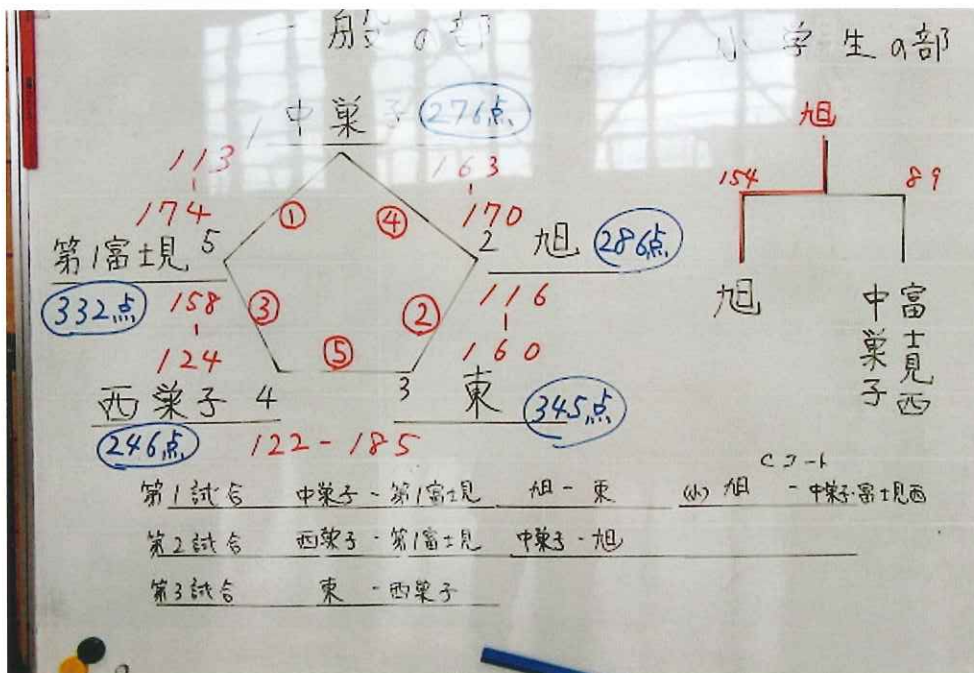 一般の部
小学生の部
1 中巣子 276点
113
-
174
①
④
163
-
170
第1富士見 5
332点
2 旭 286点
158
-
124
③
②
116
-
160
⑤
西巣子 4
246点
3 東 345点
122-185
旭
154
89
旭
中巣子
富士見西
Cコート
第1試合 中巣子-第1富士見 旭-東 (小) 旭 -中巣子・富士見西
第2試合 西巣子-第1富士見 中巣子-旭
第3試合 東-西巣子